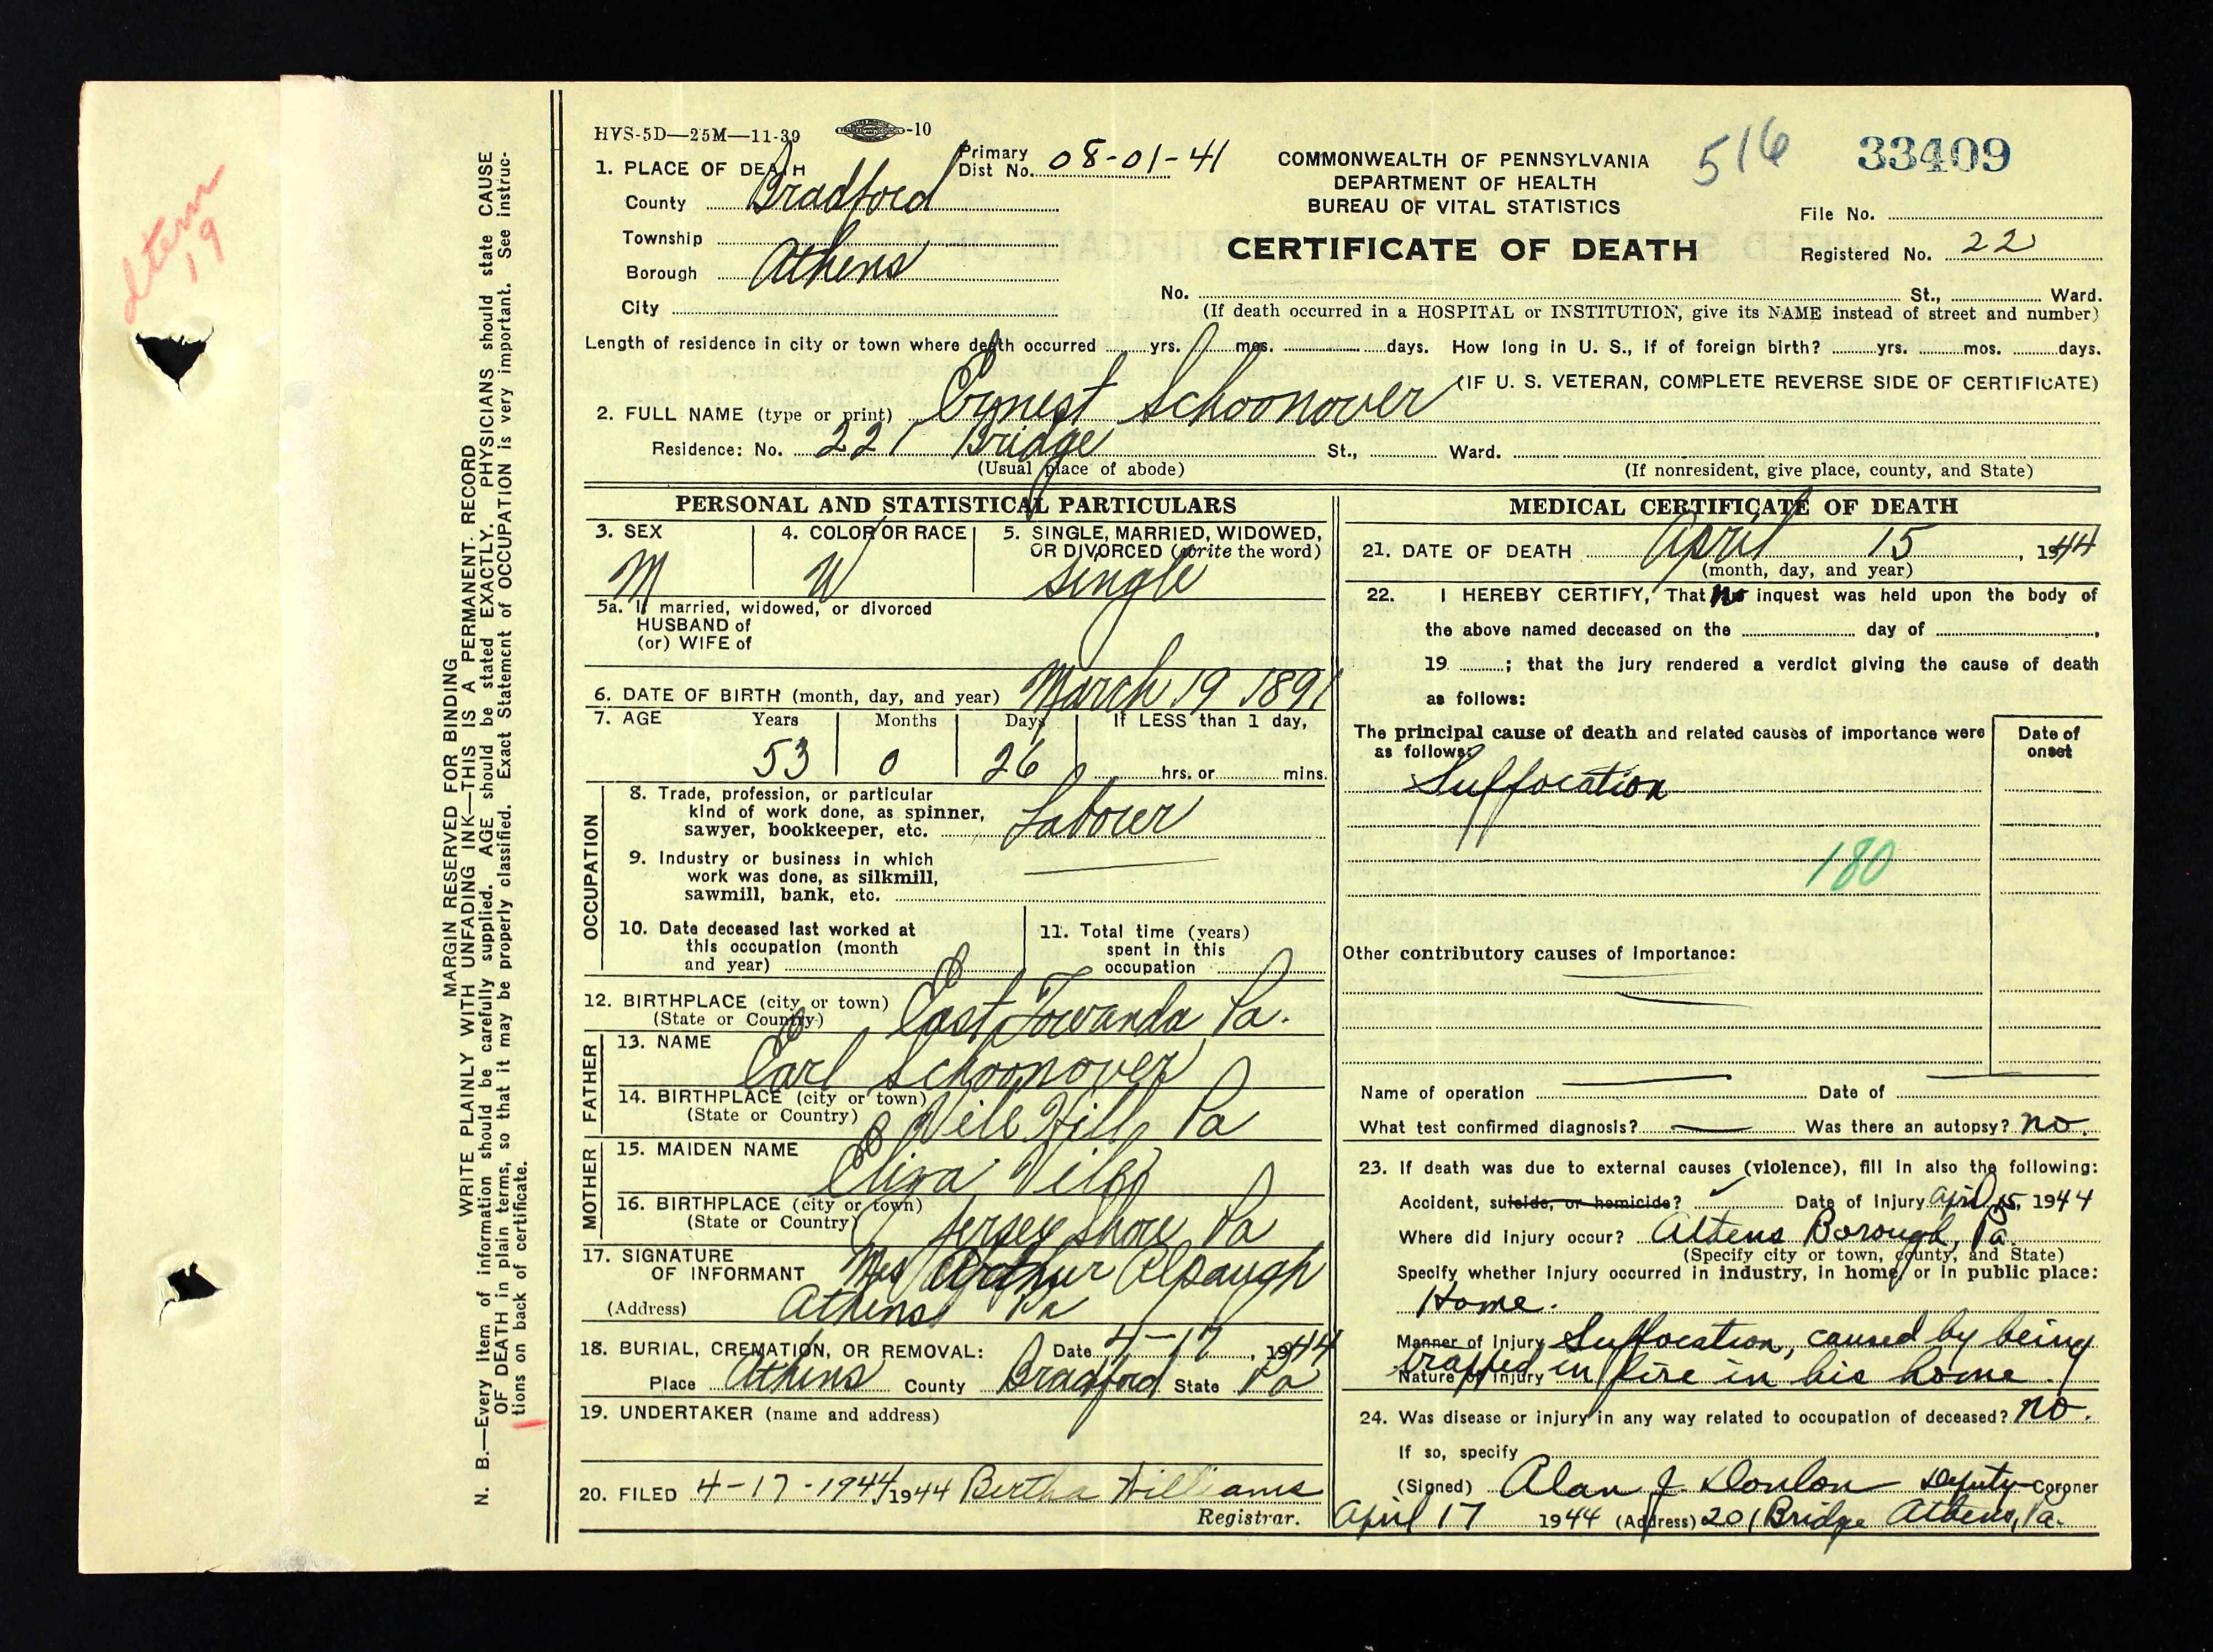 HVS-5D—25M—11-39 -10
Primary
Dist No. 08-01-41
COMMONWEALTH OF PENNSYLVANIA
DEPARTMENT OF HEALTH
BUREAU OF VITAL STATISTICS
CERTIFICATE OF DEATH
516 33409
File No.
Registered No. 22
1. PLACE OF DEATH
County Bradford
Township
Borough Athens
City
No. St., Ward.
(If death occurred in a HOSPITAL or INSTITUTION, give its NAME instead of street and number)
Length of residence in city or town where death occurred yrs. mos. days. How long in U. S., if of foreign birth? yrs. mos. days.
(IF U. S. VETERAN, COMPLETE REVERSE SIDE OF CERTIFICATE)
2. FULL NAME (type or print) Ernest Schoonover
Residence: No. 221 Bridge St., Ward.
(Usual place of abode) (If nonresident, give place, county, and State)
PERSONAL AND STATISTICAL PARTICULARS
3. SEX 4. COLOR OR RACE 5. SINGLE, MARRIED, WIDOWED,
OR DIVORCED (write the word)
M W Single
5a. If married, widowed, or divorced
HUSBAND of
(or) WIFE of
6. DATE OF BIRTH (month, day, and year) March 19 1891
7. AGE Years Months Days If LESS than 1 day,
53 0 26 hrs. or mins.
OCCUPATION
8. Trade, profession, or particular
kind of work done, as spinner,
sawyer, bookkeeper, etc. Laborer
9. Industry or business in which
work was done, as silkmill,
sawmill, bank, etc.
10. Date deceased last worked at
this occupation (month
and year)
11. Total time (years)
spent in this
occupation
12. BIRTHPLACE (city or town)
(State or Country) East Towanda Pa.
FATHER
13. NAME Earl Schoonover
14. BIRTHPLACE (city or town)
(State or Country) Hill Pa
MOTHER
15. MAIDEN NAME Eliza
16. BIRTHPLACE (city or town)
(State or Country) Jersey Shore Pa
17. SIGNATURE
OF INFORMANT Mrs Arthur Alpaugh
(Address) Athens Pa
18. BURIAL, CREMATION, OR REMOVAL: Date 4-17, 1944
Place Athens County Bradford State Pa
19. UNDERTAKER (name and address)
20. FILED 4-17-1944 1944 Bertha Williams
Registrar.
MEDICAL CERTIFICATE OF DEATH
21. DATE OF DEATH April 15, 1944
(month, day, and year)
22. I HEREBY CERTIFY, That no inquest was held upon the body of
the above named deceased on the day of ,
19 ; that the jury rendered a verdict giving the cause of death
as follows:
The principal cause of death and related causes of importance were
as follows:
Date of
onset
Suffocation
180
Other contributory causes of importance:
Name of operation Date of
What test confirmed diagnosis? Was there an autopsy? no.
23. If death was due to external causes (violence), fill in also the following:
Accident, suicide, or homicide? ✓ Date of injury April 15, 1944
Where did injury occur? Athens Borough, Pa.
(Specify city or town, county, and State)
Specify whether injury occurred in industry, in home, or in public place:
Home.
Manner of injury Suffocation, caused by being
Nature of injury trapped in fire in his home.
24. Was disease or injury in any way related to occupation of deceased? no.
If so, specify
(Signed) Alan J. Donlon Deputy Coroner
April 17 1944 (Address) 201 Bridge Athens, Pa.
MARGIN RESERVED FOR BINDING
WRITE PLAINLY WITH UNFADING INK—THIS IS A PERMANENT RECORD
N. B.—Every item of information should be carefully supplied. AGE should be stated EXACTLY. PHYSICIANS should state CAUSE
OF DEATH in plain terms, so that it may be properly classified. Exact Statement of OCCUPATION is very important. See instruc-
tions on back of certificate.
item
19